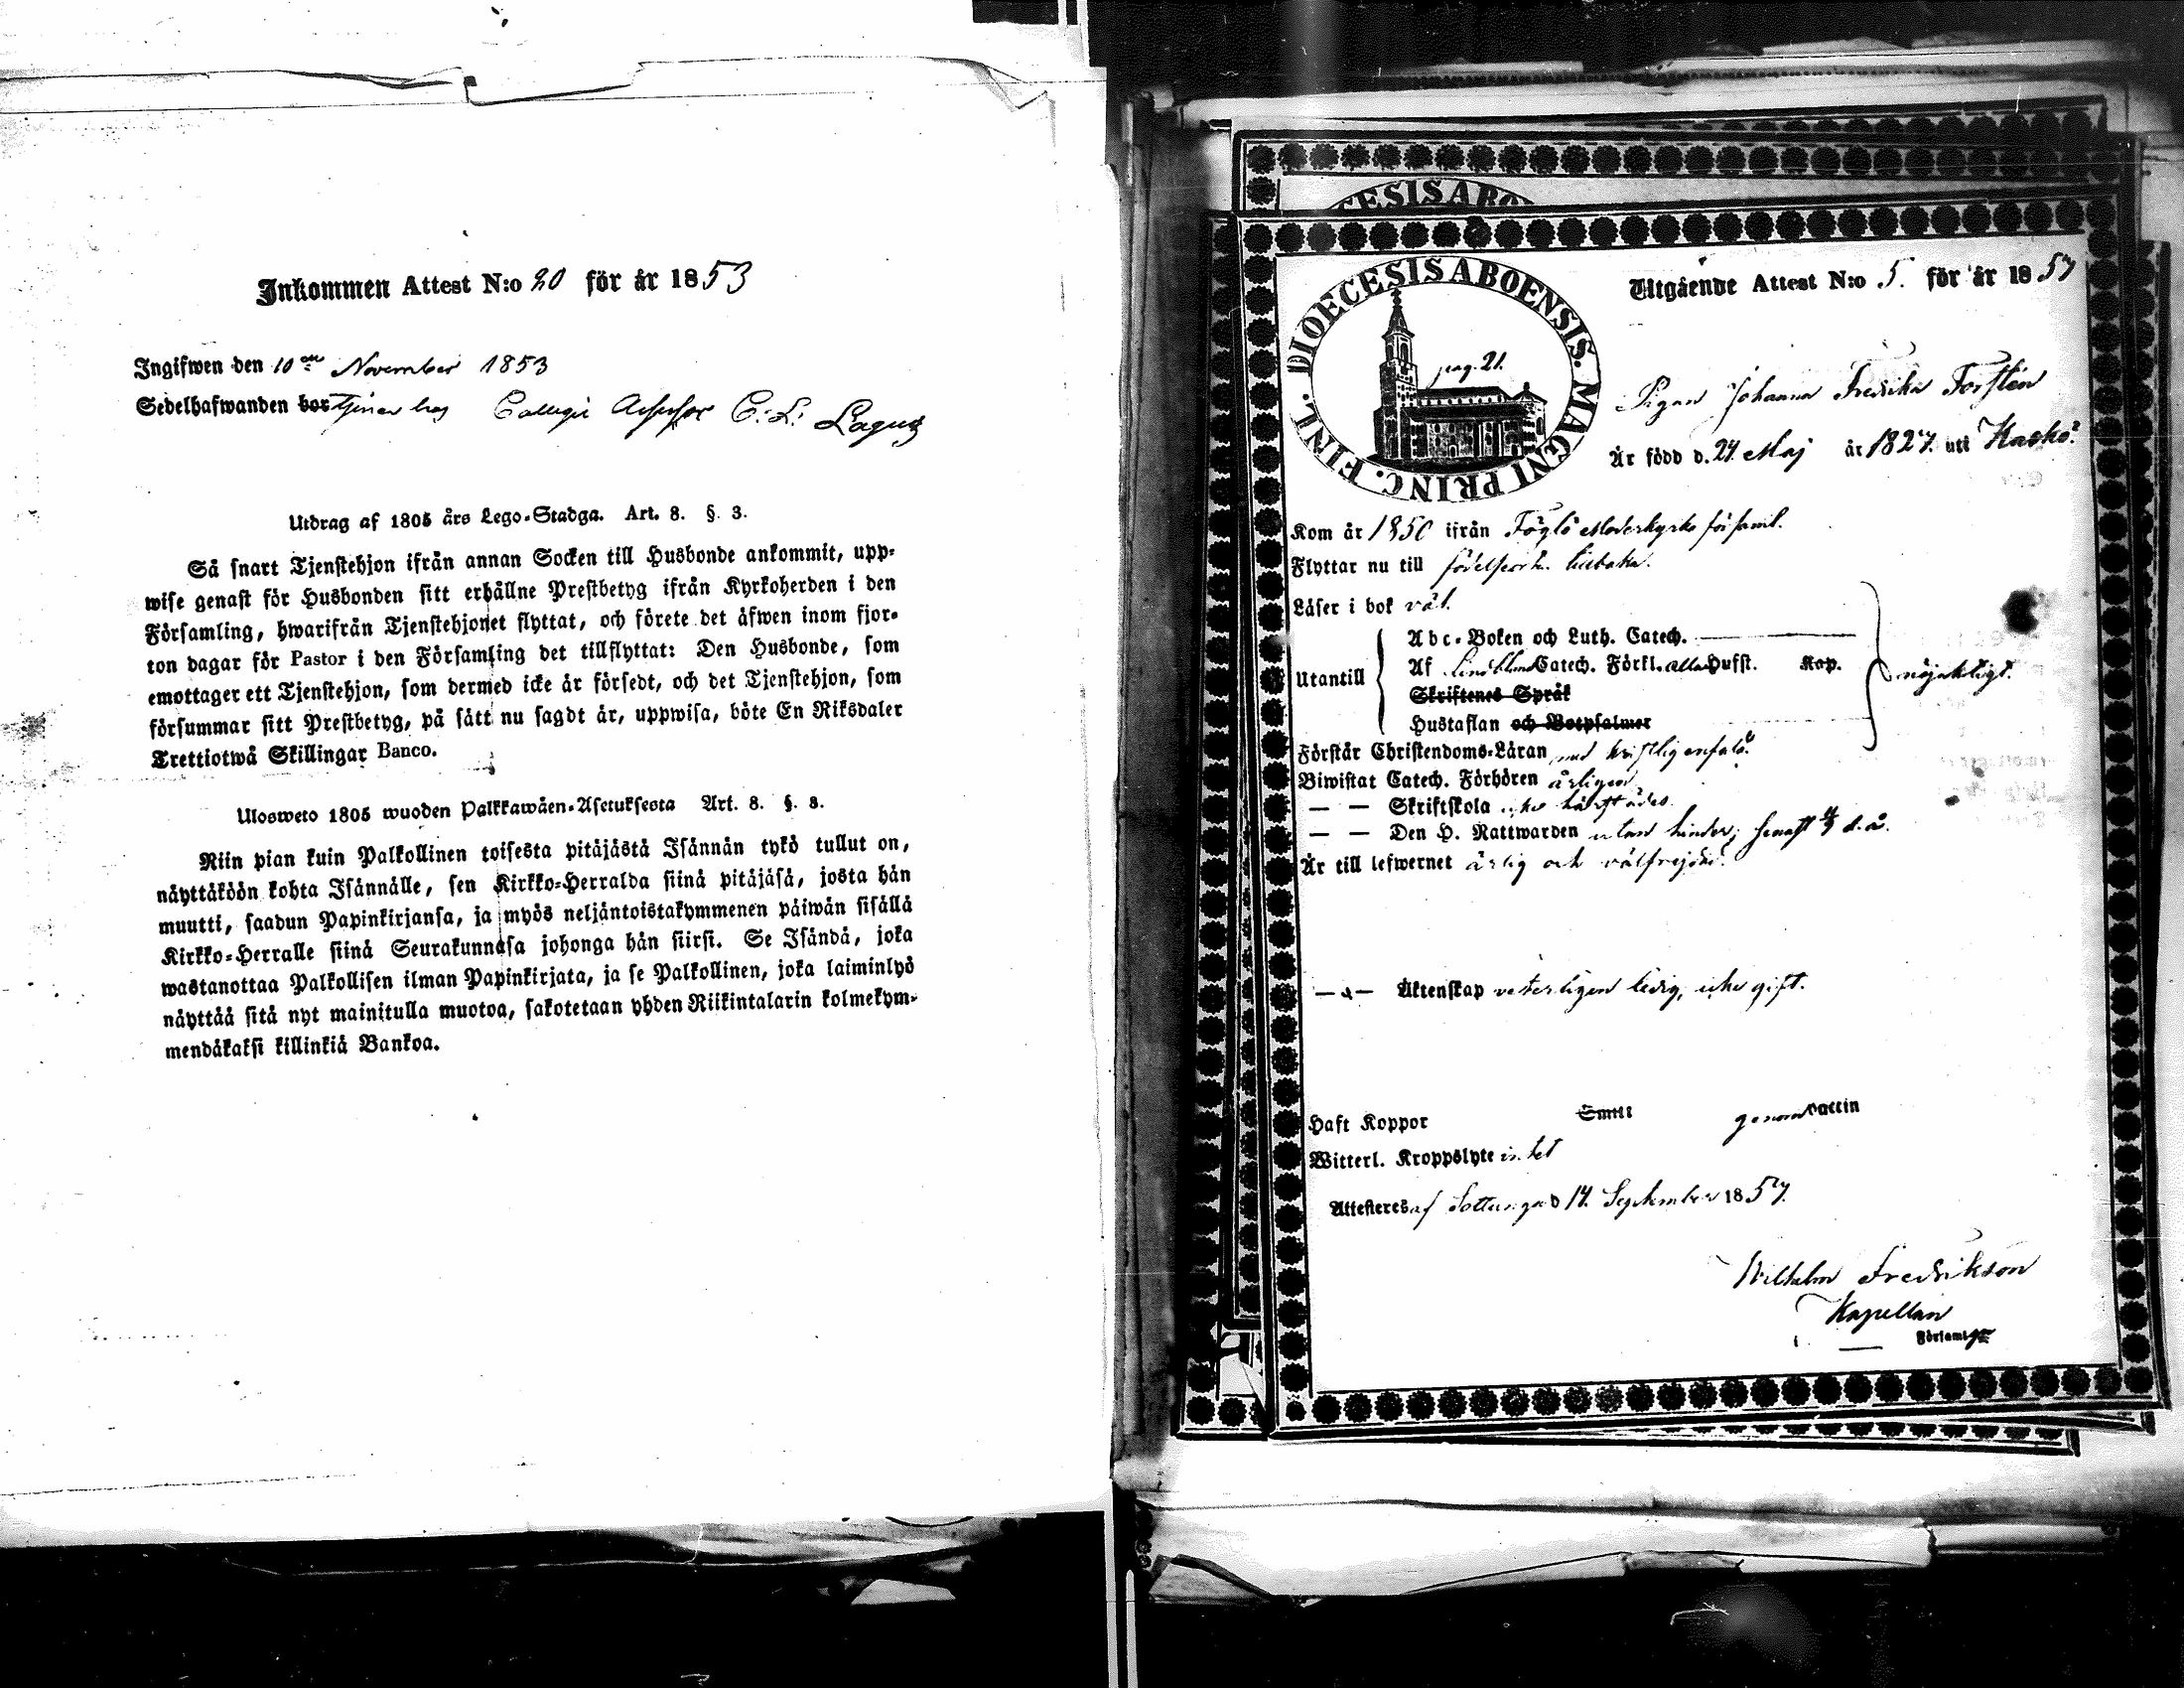 Inkommen Attest N:o 20 för år 1853
Ingifwen den 10de November 1853
Sedelhafwanden bor tjenar hos Collegii Assessor C: L: Lagus
Utdrag af 1805 års Lego-Stadga. Art. 8. §. 3.
Så snart Tjenstehjon ifrån annan Socken till Husbonde ankommit, upp-
wise genast för Husbonden sitt erhållne Prestbetyg ifrån Kyrkoherden i den
Församling, hwarifrån Tjenstehjonet flyttat, och förete det äfwen inom fjor-
ton dagar för Pastor i den Församling det tillflyttat: Den Husbonde, som
emottager ett Tjenstehjon, som dermed icke är försedt, och det Tjenstehjon, som
försummar sitt Prestbetyg, på sätt nu sagdt är, uppwisa, böte En Riksdaler
Trettiotwå Skillingar Banco.
Ulosweto 1805 wuoden Palkkawäen-Asetuksesta Art. 8. §. 3.
Niin pian kuin Palkollinen toisesta pitäjästä Isännän tykö tullut on,
näyttäköön kohta Isännälle, sen Kirkko-Herralda siinä pitäjäsä, josta hän
muutti, saadun Papinkirjansa, ja myös neljäntoistakymmenen päiwän sisällä
Kirkko-Herralle siinä Seurakunnasa johonga hän siirsi. Se Isändä, joka
wastanottaa Palkollisen ilman Papinkirjata, ja se Palkollinen, joka laiminlyö
näyttää sitä nyt mainitulla muotoa, sakotetaan yhden Riikintalarin kolmekym-
mendäkaksi killinkiä Bankoa.
CESIS ABO
DIOECESIS ABOENSIS. MAGNI PRINC. FINL.
pag. 21.
Utgående Attest N:o 5. för år 1857
Pigan Johanna Fredrika Forstén
Är född d. 24 Maj år 1827. uti Kaskö.
Kom år 1850 ifrån Föglö Moderkyrko församl.
Flyttar nu till födelseort. tillbaka.
Läser i bok väl.
Utantill
Abc-Boken och Luth. Catech.
Af Catech. Förkl. alla Hufst. Kap.
Skriftenes Språk
Hustaflan och Botpsalmer
nöjaktigt.
Förstår Christendoms-Läran med kristlig enfald.
Biwistat Catech. Förhören årligen
— — Skriftskola icke härstädes.
— — Den H. Nattwarden utan hinder; senast d. å.
Är till lefwernet ärlig och välfrejdad.
— „ — Äktenskap veterligen ledig, icke gift.
Haft Koppor Smitt genom vaccin
Witterl. Kroppslyte intet
Attesteres af Sottunga d 14. September 1857.
Wilhelm Fredrikson
Kapellan